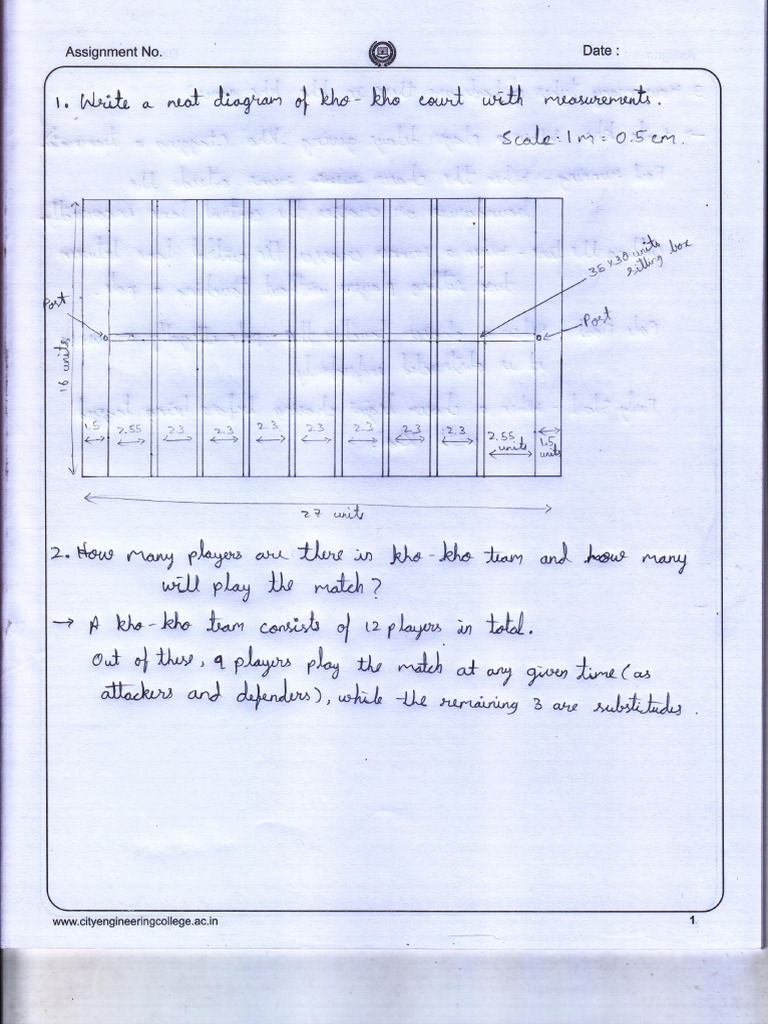 Assignment No.
Date :
1. Write a neat diagram of kho-kho court with measurements.
Scale: 1 m = 0.5 cm.
35 x 30 units
sitting box
Post
Post
16 units
1.5
2.55
2.3
2.3
2.3
2.3
2.3
2.3
2.3
2.55
units
1.5
units
27 units
2. How many players are there in kho-kho team and how many
will play the match?
→ A kho-kho team consists of 12 players in total.
Out of these, 9 players play the match at any given time (as
attackers and defenders), while the remaining 3 are substitudes.
www.cityengineeringcollege.ac.in
1